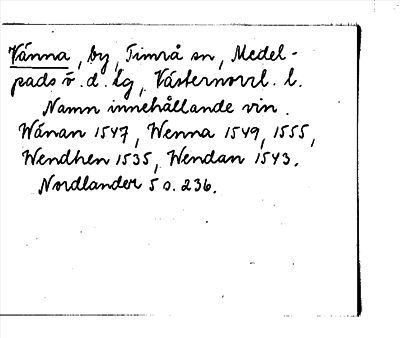 Vänna, by, Timrå sn, Medel-
pads ö. d. lg, Västernorrl. l.
Namn innehållande vin.
Wånan 1547, Wenna 1549, 1555,
Wendhen 1535, Wendan 1543.
Nordlander 5 o. 236.